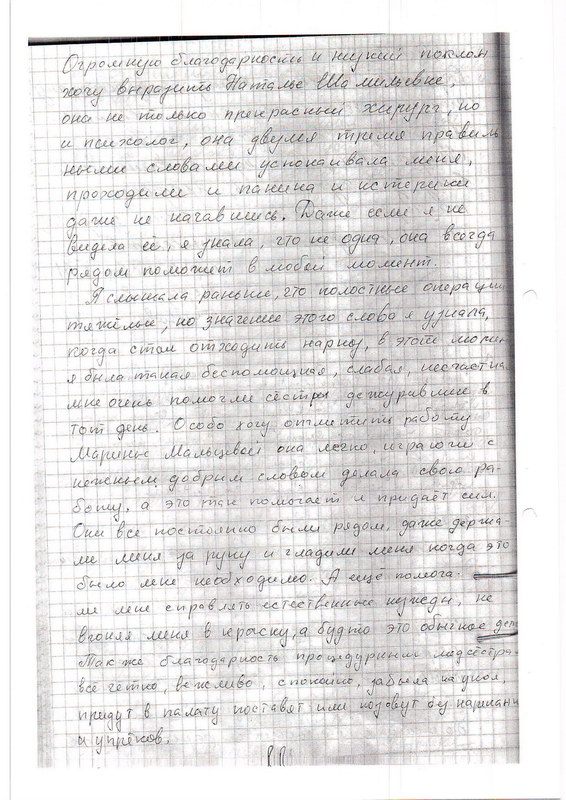 Огромную благодарность и низкий поклон
хочу выразить Наталье Шамильевне,
она не только прекрасный хирург, но
и психолог, она двумя тремя правиль
ными словами успокаивала меня,
проходили и паника и истерики
даже не начавшись. Даже если я не
видела её, я знала, что не одна, она всегда
рядом поможет в любой момент.
Я слышала раньше, что полостные операции
тяжёлые, но значение этого слова я узнала,
когда стал отходить наркоз, в этот момен
я была такая беспомощная, слабая, несчастна
мне очень помогли сёстры дежурившие в
тот день. Особо хочу отметить работу
Марины Мальцевой она легко, играючи с
нежным, добрым словом делала свою ра-
боту, а это так помогает и придаёт сил.
Они все постоянно были рядом, даже держа-
ли меня за руку и гладили меня когда это
было мне необходимо. А ещё помога-
ли мне справлять естественные нужды, не
вгоняя меня в краску, а будто это обычное дело
Так же благодарность процедурным медсёстра
всё чётко, вежливо, спокойно, забыла на укол,
придут в палату поставят или позовут без нарекани
и упрёков.